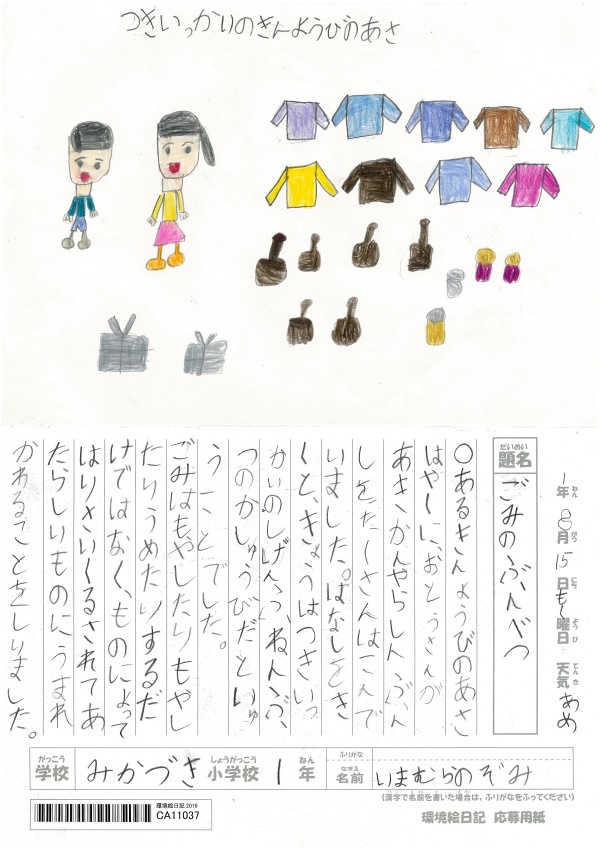 つきいっかいのきんようびのあさ
1年 8月 15日 も〜曜日 天気 あめ
ねん がつ にち ようび てんき
だいめい
題名
ごみのぶんべつ
〇あるきんようびのあさ
はやくに、おとうさんが
あきかんやらしんぶん
しをたくさんはこんで
いました。はなしをき
くと、きょうはつきいっ
かいのしげんつ、ねんぶ、
つのかしゅうびだといゅ
うことでした。
ごみはもやしたりもやし
たりうめたりするだ
けではなく、ものによって
はりさいくるされてあ
たらしいものにうまれ
かわることをしりました。
がっこう しょうがっこう ねん ふりがな
学校 みかづき 小学校 1年 名前 いまむらのぞみ
なまえ
(漢字で名前を書いた場合は、ふりがなをふってください)
環境絵日記 2019
CA11037
環境絵日記 応募用紙